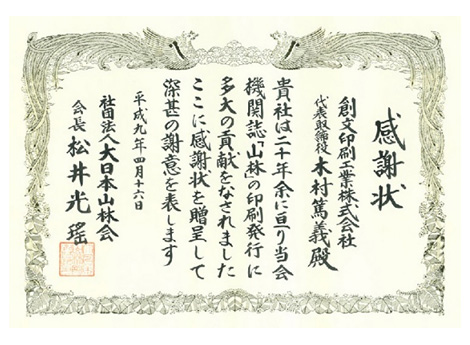 感謝状
創文印刷工業株式会社
代表取締役 木村篤義殿
貴社は二十年余に亘り当会
機関誌「山林」の印刷発行に
多大の貢献をなされました
ここに感謝状を贈呈して
深甚の謝意を表します
平成九年四月十六日
社団法人大日本山林会
会長 松井光瑶